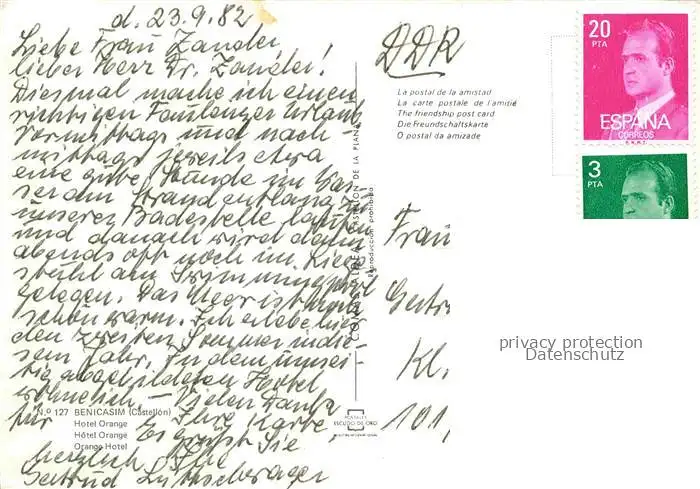 d. 23.9.82
Liebe Frau Zander,
lieber Herr Dr. Zander!
Diesmal mache ich einen
richtigen Faulenzer Urlaub
Vormittags und nach-
mittags jeweils etwa
eine gute Stunde im Was-
ser am Strand entlang zu
unserer Badestelle laufen
und danach wird dann
abends oft noch im Liege-
stuhl am Swimmingpool
gelegen. Das Meer ist
schön warm. Ich erlebe hier
den zweiten Sommer in die-
sem Jahr. In dem umsei-
tig abgebildeten Hotel
wohne ich. – Vielen Dank
für Ihre Karte,
Es grüßt Sie
herzlich Ihre
Gertrud
N.º 127 BENICASIM (Castellón)
Hotel Orange
Hôtel Orange
Orange Hotel
COMAS ALDEA CASTELLON DE LA PLANA
Reproducción prohibida
POSTALES
ESCUDO DE ORO
DDR
La postal de la amistad
La carte postale de l'amitié
The friendship post card
Die Freundschaftskarte
O postal da amizade
20
PTA
ESPAÑA
CORREOS
F.N.M.T.
3
PTA
Frau
Gertr
Kl.
101,
privacy protection
Datenschutz